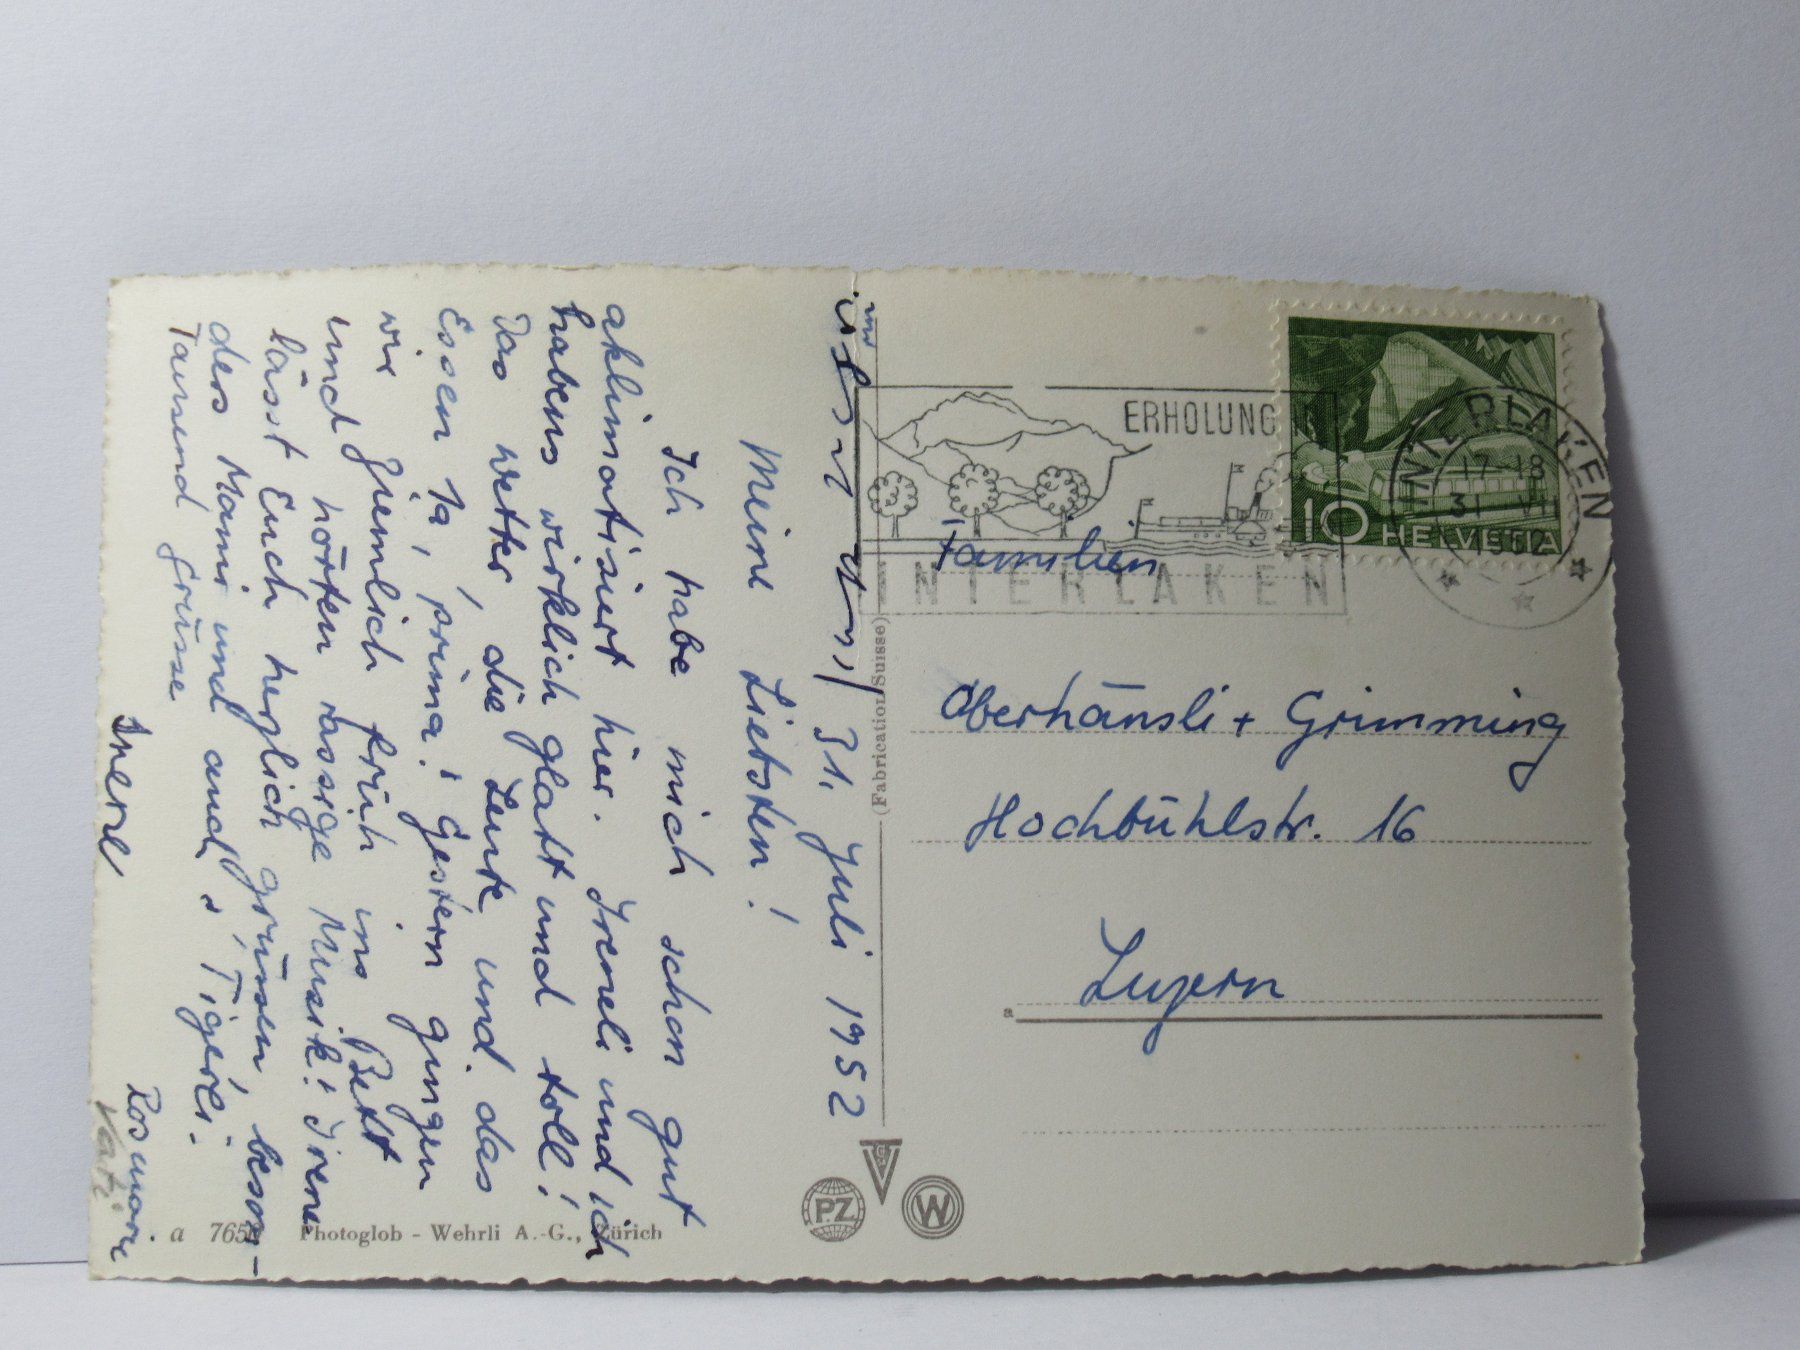 31. Juli 1952
Meine Liebsten!
Ich habe mich schon gut
aklimatisiert hier. Ireneli und ich
habens wirklich glatt und toll!
Das Wetter, die Leute und das
Essen 1a, prima! Gestern gingen
wir ziemlich früh ins Bett
und hörten rassige Musik! Irene
lässt Euch herzlich grüssen, beson-
ders Mami und auch s' Tigerli.
Tausend Grüsse
Rosmarie
Irene
Vati
a 765
Photoglob - Wehrli A.-G., Zürich
(Fabrication Suisse)
PZ
W
ERHOLUNG IN
INTERLAKEN
INTERLAKEN
17-18
31 VII
1952
10 HELVETIA
Familien
Oberhänsli + Grimming
Hochbühlstr. 16
a
Luzern